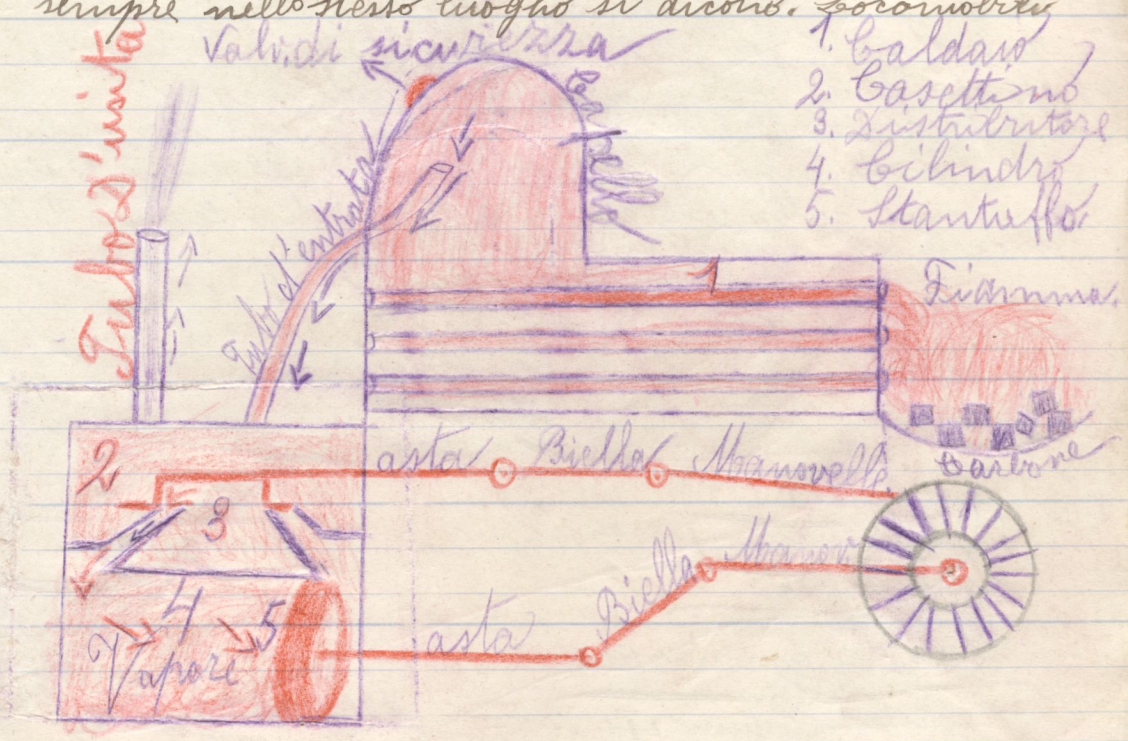 sempre nello stesso luogo si dicono. Locomobili
Valv. di sicurezza
1. Caldaio
2. Casettino
3. Distributore
4. Cilindro
5. Stantuffo
Tubo d'usita
Tubo d'entrata
Capello
1
Fiamma.
Carbone
2
asta Biella Manovella
3
4
5
Vapore
asta Biella Manov